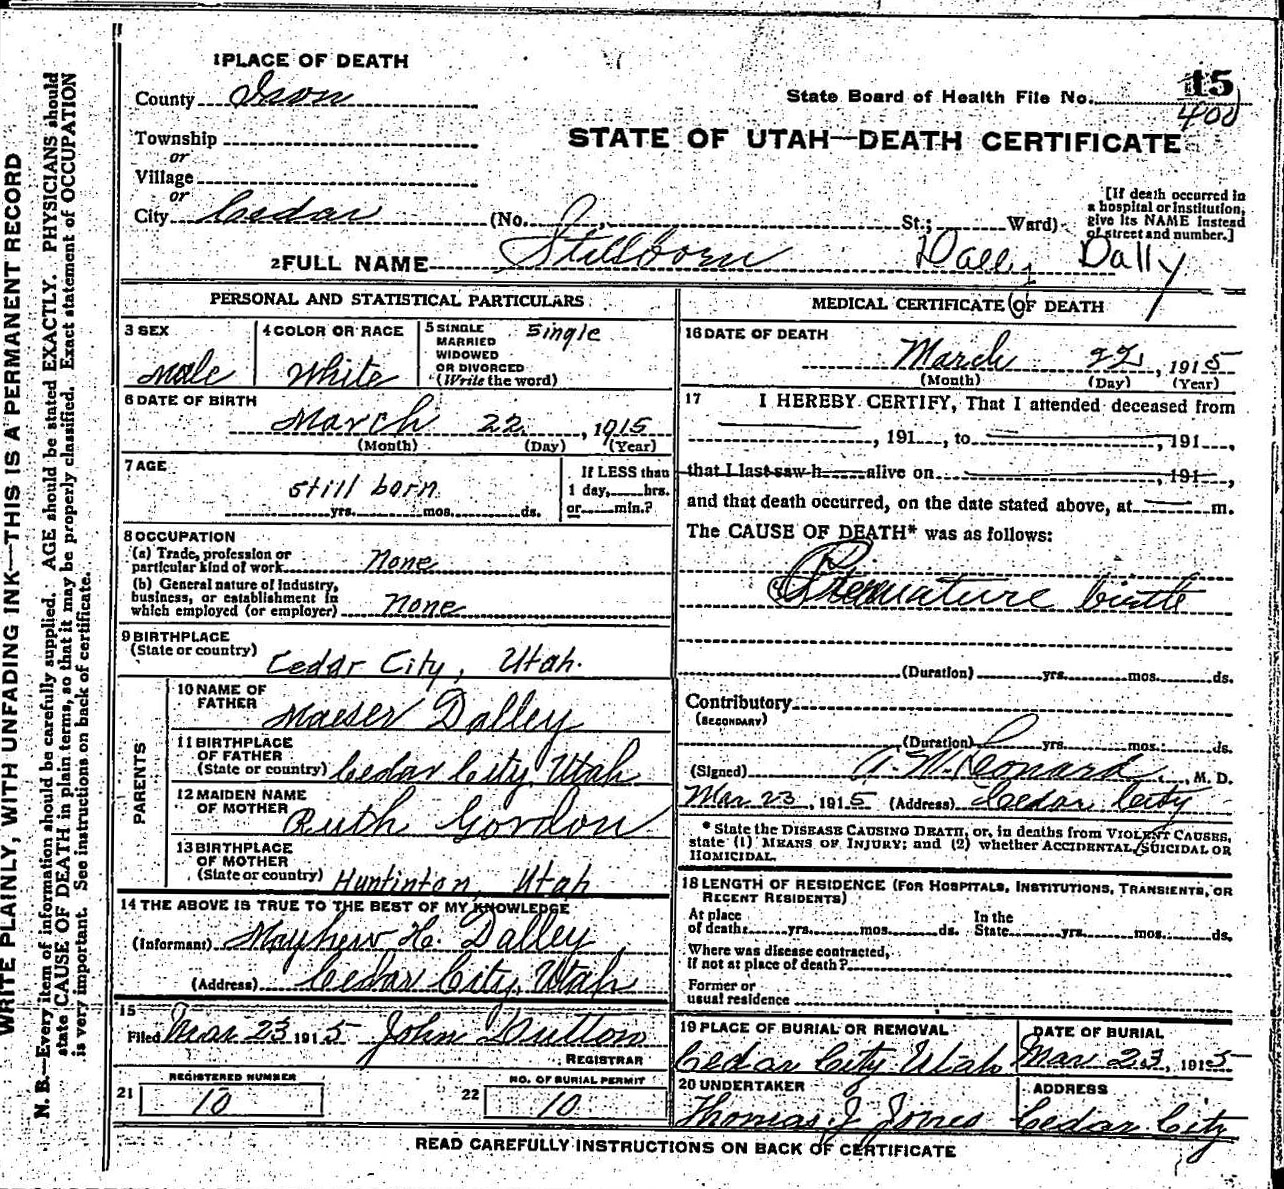 WRITE PLAINLY, WITH UNFADING INK—THIS IS A PERMANENT RECORD
N. B.—Every item of information should be carefully supplied. AGE should be stated EXACTLY. PHYSICIANS should
state CAUSE OF DEATH in plain terms, so that it may be properly classified. Exact statement of OCCUPATION
is very important. See instructions on back of certificate.
1 PLACE OF DEATH
County Iron
Township
or
Village
or
City Cedar (No. St.; Ward)
State Board of Health File No. 15
400
STATE OF UTAH—DEATH CERTIFICATE
[If death occurred in
a hospital or institution,
give its NAME instead
of street and number.]
2 FULL NAME Stillborn Dally Dally
PERSONAL AND STATISTICAL PARTICULARS
3 SEX
Male
4 COLOR OR RACE
White
5 SINGLE
MARRIED
WIDOWED
OR DIVORCED
(Write the word)
Single
6 DATE OF BIRTH
March 22, 1915
(Month) (Day) (Year)
7 AGE
Still born
yrs. mos. ds.
If LESS than
1 day, hrs.
or min.?
8 OCCUPATION
(a) Trade, profession or
particular kind of work None
(b) General nature of industry,
business, or establishment in
which employed (or employer) None
9 BIRTHPLACE
(State or country) Cedar City, Utah.
PARENTS
10 NAME OF
FATHER Maeser Dalley
11 BIRTHPLACE
OF FATHER
(State or country) Cedar City, Utah
12 MAIDEN NAME
OF MOTHER Ruth Gordon
13 BIRTHPLACE
OF MOTHER
(State or country) Huntinton, Utah
14 THE ABOVE IS TRUE TO THE BEST OF MY KNOWLEDGE
(Informant) Mayhew H. Dalley
(Address) Cedar City, Utah
15
Filed Mar 23 1915 John Dutton
REGISTRAR
21 REGISTERED NUMBER
10
22 NO. OF BURIAL PERMIT
10
MEDICAL CERTIFICATE OF DEATH
16 DATE OF DEATH
March 22, 1915
(Month) (Day) (Year)
17 I HEREBY CERTIFY, That I attended deceased from
, 191 , to , 191 ,
that I last saw h alive on , 191 ,
and that death occurred, on the date stated above, at m.
The CAUSE OF DEATH* was as follows:
Premature birth
(Duration) yrs. mos. ds.
Contributory
(SECONDARY)
(Duration) yrs. mos. ds.
(Signed) A. W. Leonard, M. D.
Mar 23, 1915 (Address) Cedar City
* State the DISEASE CAUSING DEATH, or, in deaths from VIOLENT CAUSES,
state (1) MEANS OF INJURY; and (2) whether ACCIDENTAL, SUICIDAL OR
HOMICIDAL.
18 LENGTH OF RESIDENCE (FOR HOSPITALS, INSTITUTIONS, TRANSIENTS, OR
RECENT RESIDENTS)
At place
of deaths yrs. mos. ds.
In the
State yrs. mos. ds.
Where was disease contracted,
if not at place of death?
Former or
usual residence
19 PLACE OF BURIAL OR REMOVAL
Cedar City, Utah
DATE OF BURIAL
Mar 23, 1915
20 UNDERTAKER
Thomas J Jones
ADDRESS
Cedar City
READ CAREFULLY INSTRUCTIONS ON BACK OF CERTIFICATE